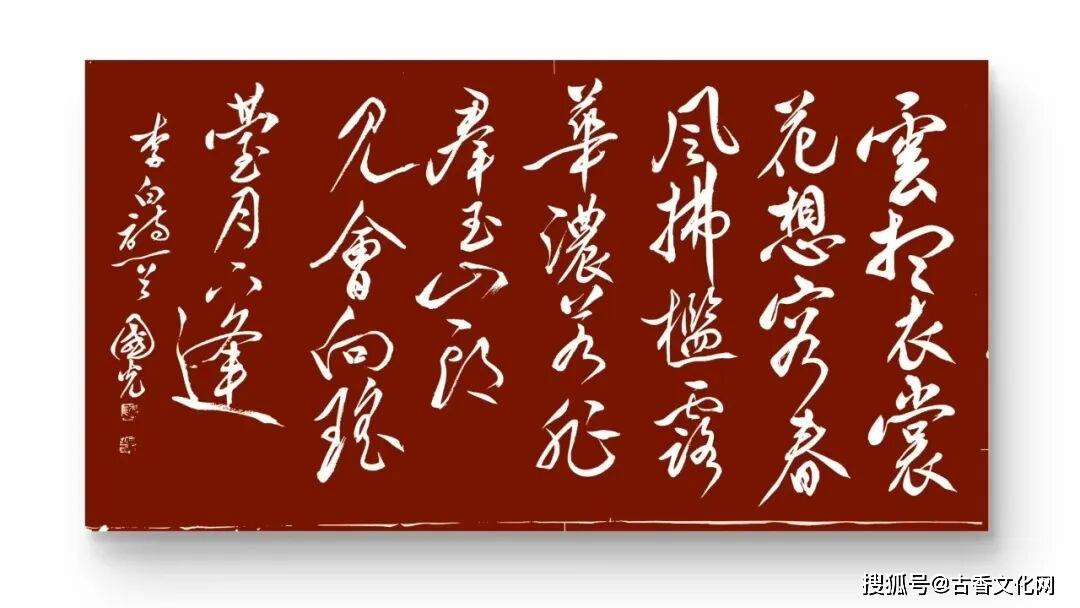 雲想衣裳
花想容春
風拂檻露
華濃若非
羣玉山頭
見會向瑤
臺月下逢
李白詩一首 國光
搜狐号@古香文化网